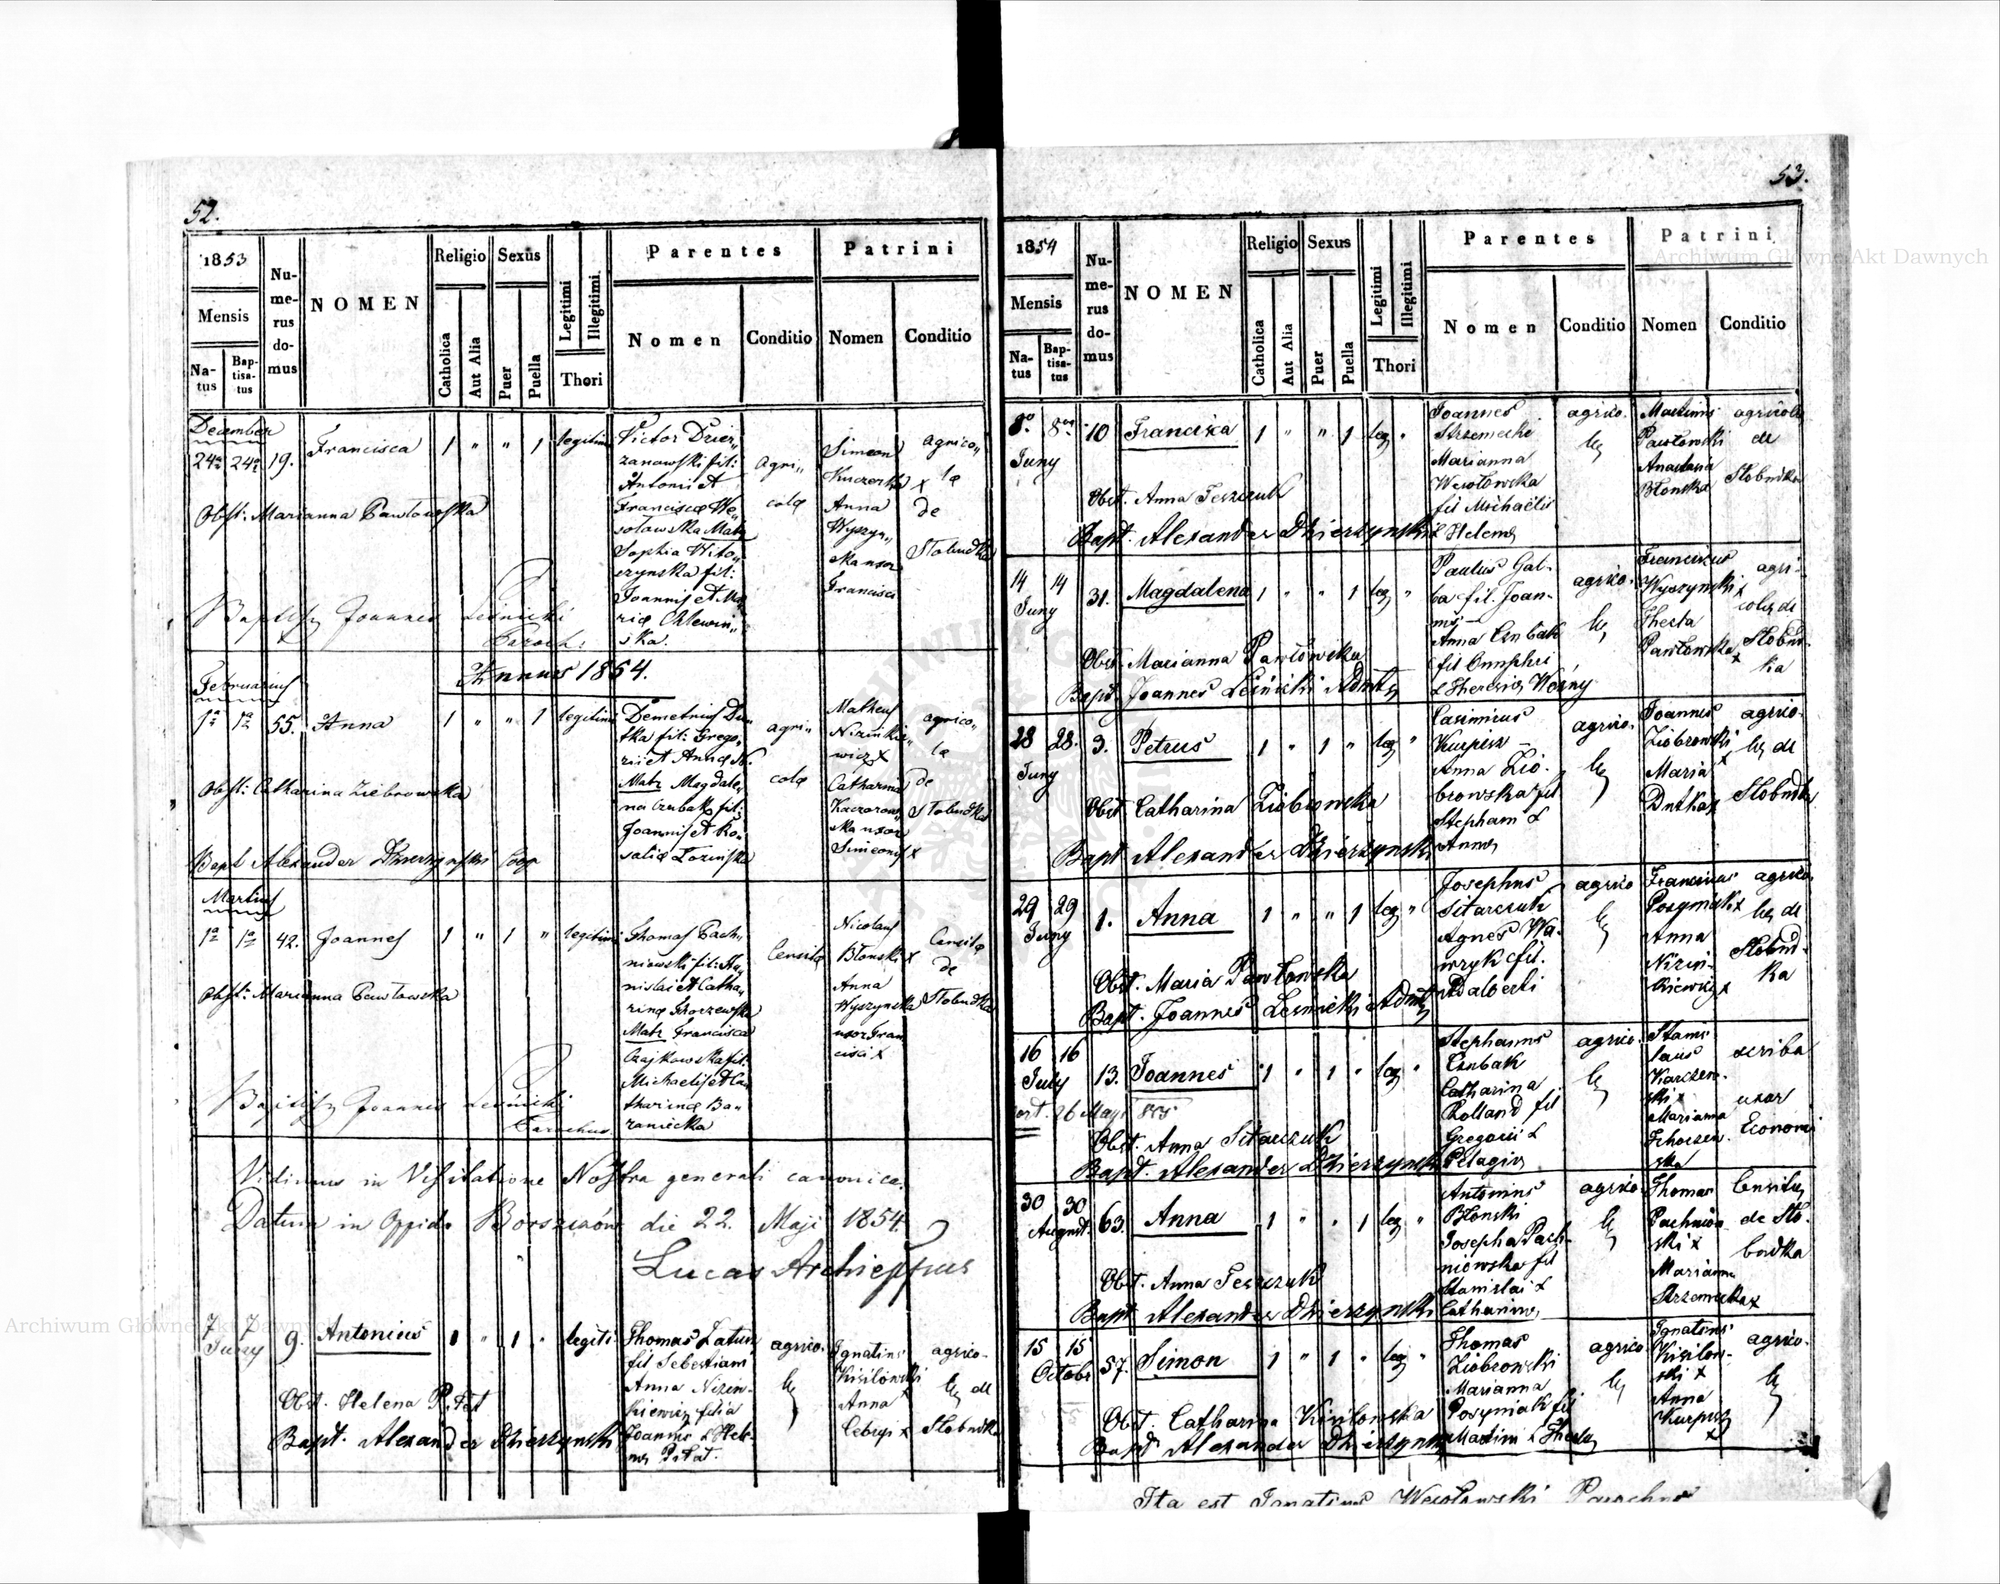 52.
1853
Mensis
Na-
tus
Bap-
tisa-
tus
Nu-
me-
rus
do-
mus
NOMEN
Religio
Catholica
Aut Alia
Sexus
Puer
Puella
Legitimi
Illegitimi.
Thori
Parentes
Nomen
Conditio
Patrini
Nomen
Conditio
December
24a 24a 19. Francisca 1 " " 1 legitimi
Victor Dzier,,
zanowski fil:
Antonii et
Francisca We,,
solowska Matr
Sophia Wito,,
szynska fil:
Joannis et Ma,,
ria Chlewin,,
ska.
Agri,,
cola
Simeon
Kuczerka x
Anna
Wyszyn,,
ska uxor
Francisci
agrico,,
la
de
Slobudka
Obst: Marianna Pawlowska
Baptisz Joannes Leśnicki
Paroch:
Annus 1854.
Februarius
1a 1a 55. Anna 1 " " 1 legitimi
Demetrius Du,,
tka fil: Grego,,
rii et Anna N.
Matr Magdale,,
na Czubak fil:
Joannis et Ro,,
salia Lozińska
agri,,
cola
Matheus
Nizinkie,,
wicz x
Catharina
Kaczorows,,
ka uxor
Simeonis x
agrico,,
la
de
Slobudka
Obst: Catharina Ziobrowska
Bapt Alexander Dzierzynski Coop
Martius
1a 1a 42. Joannes 1 " 1 " legitimi
Thomas Pach,,
niowski fil: Sta,,
nislai et Catha,,
rina Skorzewska
Matr Francisca
Czajkowska fil:
Michaelis et Ca,,
tharina Ba,,
raniecka
Censita
Nicolaus
Blonski x
Anna
Wyszynska
uxor Fran
cisci x
Censita
de
Slobudka
Obst: Marianna Pawlowska
Baptisz Joannes Leśnicki
Parochus.
Vidimus in Visitatione Nostra generali canonica.
Datum in Oppido Borszczów die 22. Maji 1854
Lucas Archieppus
7 7 9. Antonius 1 " 1 " legiti
Juny
Thomas Zatur
fil Sebestiani
Anna Nizin-
kiewicz filia
Joannis & Hele-
na Petat.
agrico-
la
Ignatius
Kisilowski
x
Anna
Cebryj x
agrico-
la de
Slobudka
Obst. Helena Petat
Bapt. Alexander Dzierzynski
53.
1854
Mensis
Na-
tus
Bap-
tisa-
tus
Nu-
me-
rus
do-
mus
NOMEN
Religio
Catholica
Aut Alia
Sexus
Puer
Puella
Legitimi
Illegitimi
Thori
Parentes
Nomen
Conditio
Patrini
Nomen
Conditio
8 8 10 Franciszka 1 " " 1 leg "
Juny
Joannes
Strzemecki
Marianna
Wesolowska
fil Michaelis
& Helena
agrico-
la
Martinus
Pawlowski
Anastasia
Blonska
agricola
de
Slobudka
Obst. Anna Teszczuk
Bapt. Alexander Dzierzynski
14 14 31. Magdalena 1 " " 1 leg "
Juny
Paulus Gal-
ba fil. Joan-
nis -
Anna Czubak
fil Onuphri
& Theresia Wozny
agrico-
la
Franciszus
Wyszynski x
Thecla
Pawlowska x
agri-
cola de
Slobud-
ka
Obst. Marianna Pawlowska
Bapt. Joannes Leśnicki Admr
28 28. 3. Petrus 1 " 1 " leg "
Juny
Casimirus
Kurpisz -
Anna Zio-
browska fil
Stephani &
Anna
agrico-
la
Joannes
Ziobrowski
x
Maria
Dutka x
agrico-
la de
Slobudka
Obst. Catharina Ziobrowska
Bapt Alexander Dzierzynski
29 29 1. Anna 1 " " 1 leg "
Juny
Josephus
Sitarczuk
Agnes Wa-
wryk fil.
Adalberti
agrico
la
Franciszus
Posymak x
Anna
Nizin-
kiewicz x
agrico.
la de
Slobud-
ka
Obst. Maria Pawlowska
Bapt. Joannes Lesnicki Admr
16 16 13. Joannes 1 " 1 " leg "
July
mort. 26 Maji 855
Stephanus
Czubak
Catharina
Rolland fil
Gregorii &
Pelagia
agrico.
la
Stanis
laus
Karczew-
ski x
Marianna
Schorzew-
ska
scriba
uxor
Economi
Obst. Anna Sitarczuk
Bapt. Alexander Dzierzynski
30 30 63. Anna 1 " " 1 leg "
August.
Antonius
Blonski
Josepha Pach-
niowska fil
Stanislai &
Catharina
agrico.
la
Thomas
Pachniow-
ski x
Marianna
Strzemecka x
Censita
de Slo-
budka
Obst. Anna Teszczuk
Bapt Alexander Dzierzynski
15 15 57. Simon 1 " 1 " leg "
Octobr
Thomas
Ziobrowski
Marianna
Posyniak fil
Maxim & Thecla
agrico
la
Ignatius
Kisilow-
ski x
Anna
Kurpisz
x
agrico-
la
Obst. Catharina Kisilowska
Bapt Alexander Dzierzynski
Ita est Ignatius Wesolowski Parochus
Archiwum Główne Akt Dawnych
Archiwum Główne Akt Dawnych